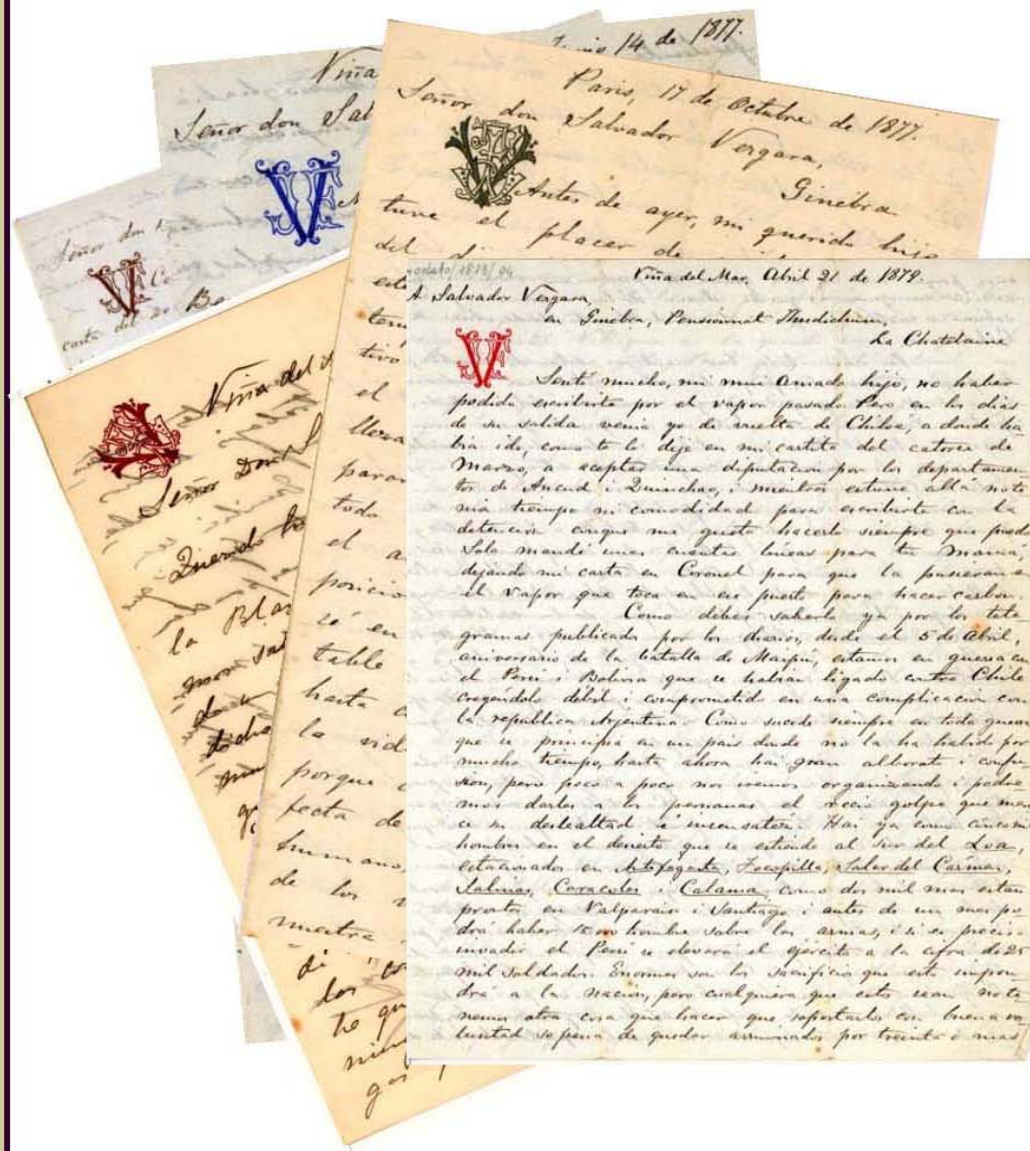 Viña
Junio 14 de 1877.
Señor don Sal
Señor don
carta del 20.
Paris, 17 de Octubre de 1877.
Señor don Salvador Vergara,
Ginebra
Antes de ayer, mi querido hijo
tuve el placer de
del
tivo
el
lleva
para
todo
el
posicio
té en
table
hasta
la vid
porque
fecta de
humano,
de los
muestra
Viña del
Señor Don
Querido
la Blan
Viña del Mar, Abril 21 de 1879.
A Salvador Vergara,
en Ginebra, Pensionnat Thudichum,
La Chatelaine
Sentí mucho, mi mui amado hijo, no haber
podido escribirte por el vapor pasado. Pero en los dias
de su salida venia yo de vuelta de Chiloe, a donde ha-
bia ido, como te lo dije en mi cartita del catorce de
Marzo, a aceptar una diputacion por los departamen-
tos de Ancud i Quinchao, i mientras estuve allá no te
nia tiempo ni comodidad para escribirte con la
detencion conque me gusta hacerlo siempre que puedo
Solo mandé unas cuantas lineas para tu mamá,
dejando mi carta en Coronel para que la pusieran en
el vapor que toca en ese puerto para hacer carbon.
Como debes saberlo ya por los tele
gramas publicados por los diarios, desde el 5 de Abril,
aniversario de la batalla de Maipú, estamos en guerra con
el Perú i Bolivia que se habian ligado contra Chile
creyéndolo débil i comprometido en una complicacion con
la república Arjentina. Como sucede siempre en toda guerra
que se principia en un pais donde no la ha habido por
mucho tiempo, hasta ahora hai gran alboroto i confu-
sion, pero poco a poco nos iremos organizando i podre-
mos darles a los peruanos el recio golpe que mere
ce su deslealtad e insensatez. Hai ya como cinco mil
hombres en el desierto que se estiende al sur del Loa,
estacionados en Antofagasta, Tocopilla, Salar del Cármen,
Salinas, Caracoles i Calama, como dos mil mas estan
prontos en Valparaiso i Santiago i antes de un mes po-
drá haber hombres sobre las armas, i si es preciso
invadir el Perú se elevará el ejército a la cifra de 25
mil soldados. Enormes son los sacrificios que esto impon-
drá a la nacion, pero cualquiera que estos sean no te
nemos otra cosa que hacer que soportarlos con buena vo
luntad so pena de quedar arruinados por treinta o mas